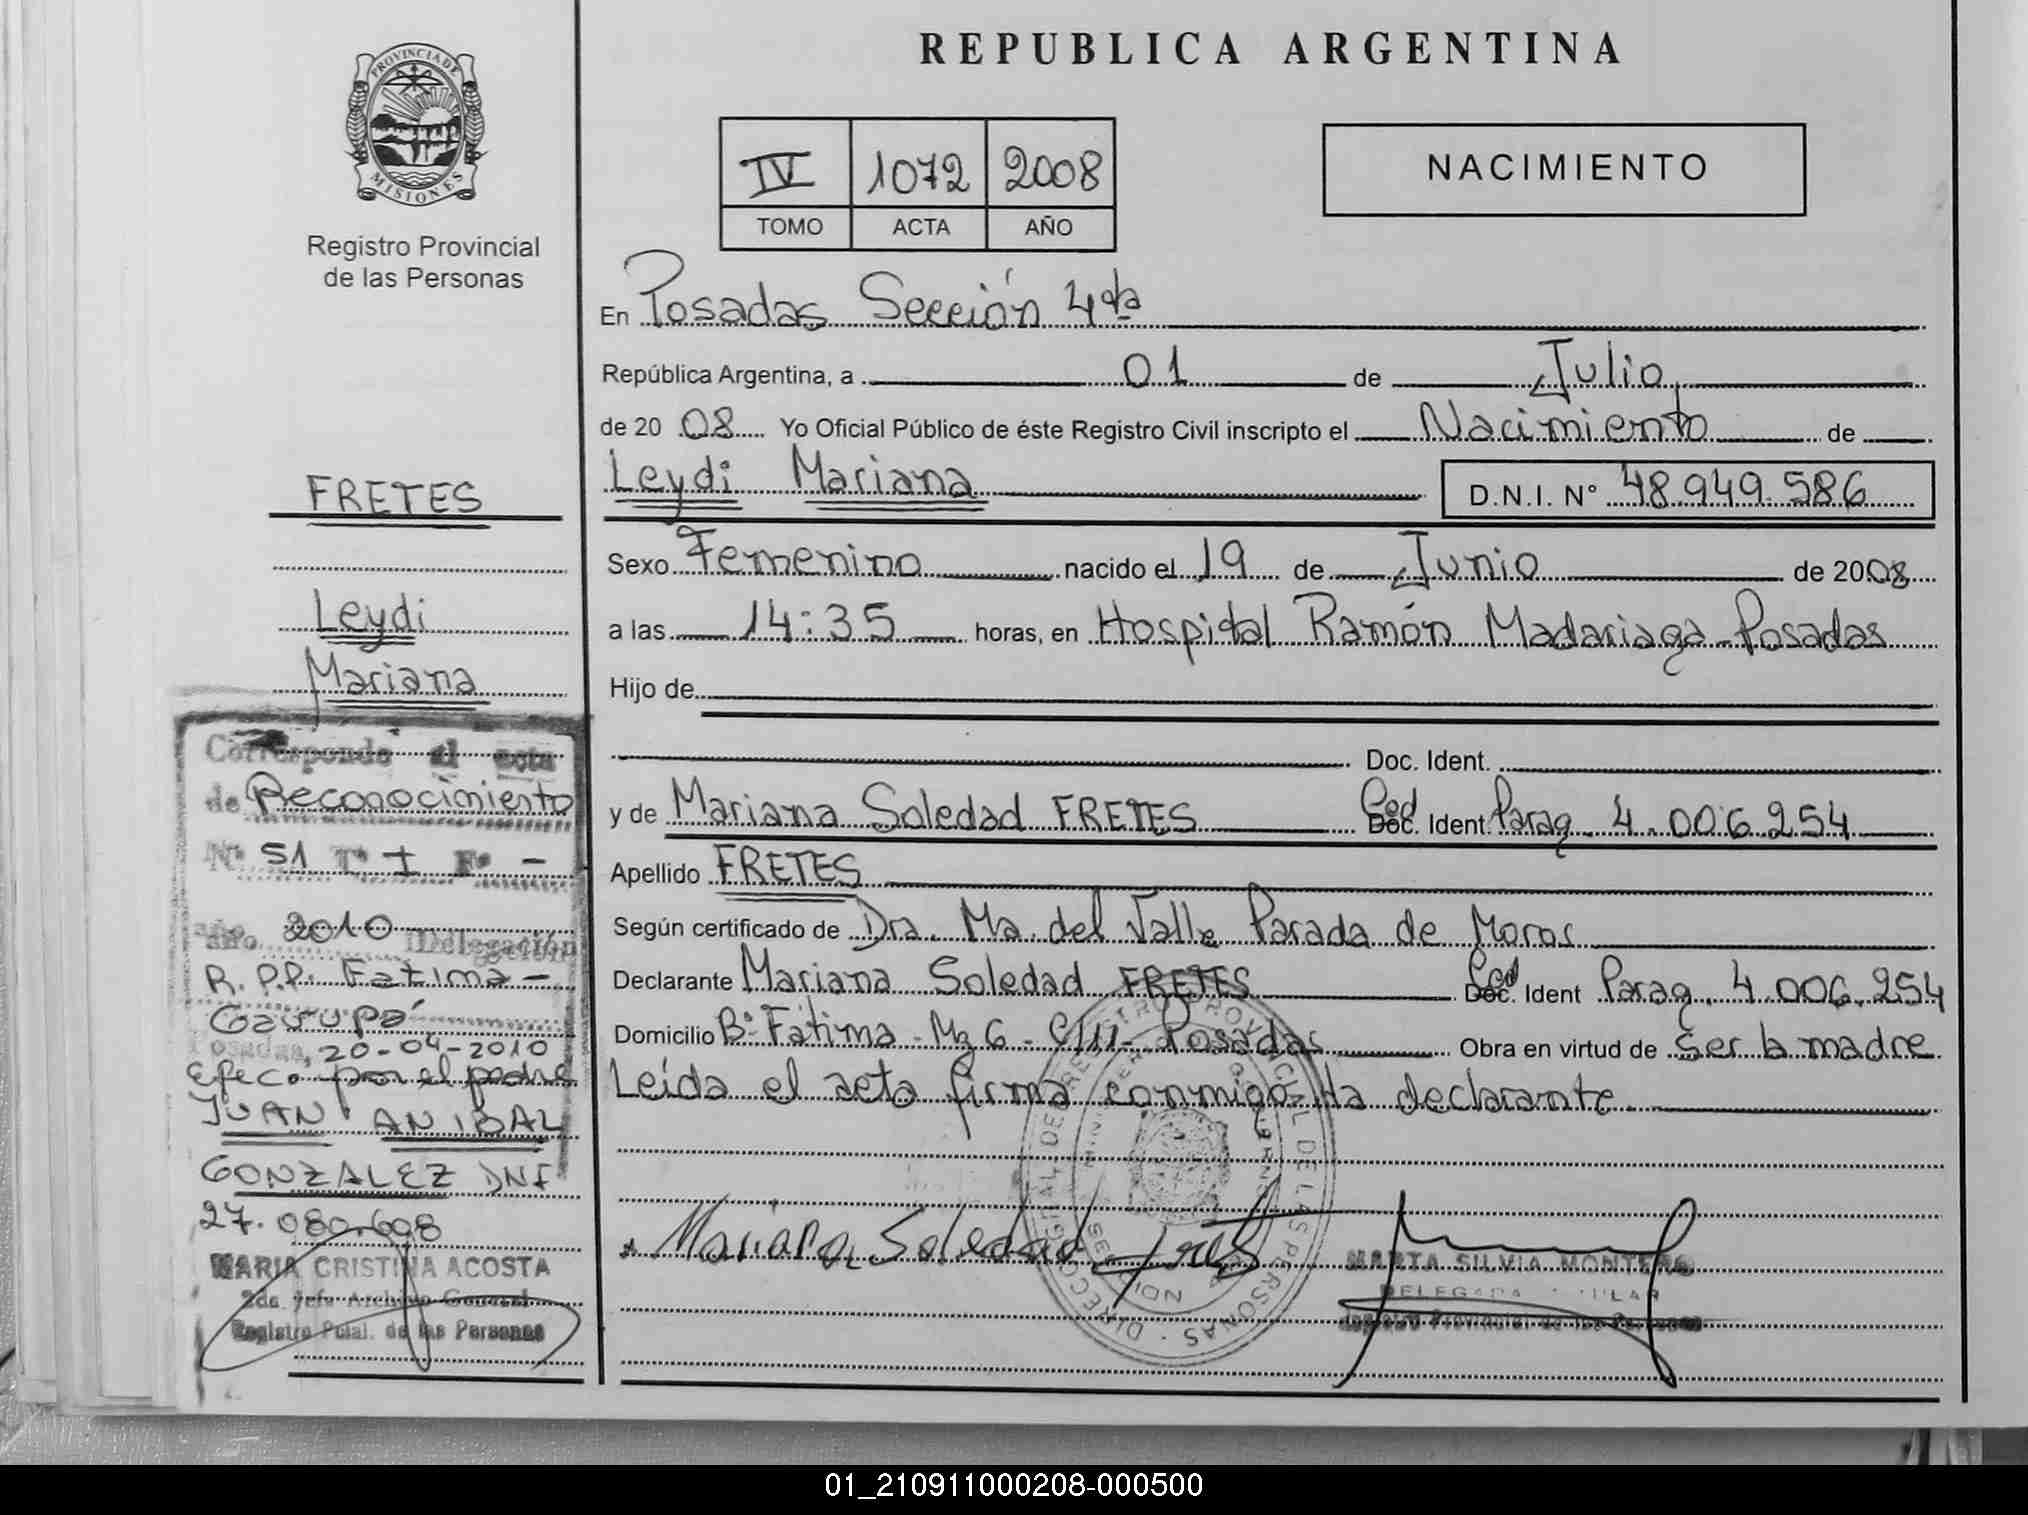 PROVINCIA DE
MISIONES
Registro Provincial
de las Personas
FRETES
Leydi
Mariana
Corresponde al acta
de Reconocimiento
Nº 51 Tº I Fº -
año 2010 Delegación
R.P.P. Fatima -
Garupá
Posadas, 20-04-2010
Efec. por el padre
JUAN ANIBAL
GONZALEZ DNI
27.080.608
MARIA CRISTINA ACOSTA
2da Jefe Archivo General
Registro Pcial. de las Personas
REPUBLICA ARGENTINA
IV 1072 2008
TOMO ACTA AÑO
NACIMIENTO
En Posadas Sección 4ta
República Argentina, a 01 de Julio
de 20 08 Yo Oficial Público de éste Registro Civil inscripto el Nacimiento de
Leydi Mariana D.N.I. Nº 48.949.586
Sexo Femenino nacido el 19 de Junio de 2008
a las 14:35 horas, en Hospital Ramón Madariaga - Posadas
Hijo de
Doc. Ident.
y de Mariana Soledad FRETES Ced Doc. Ident. Parag. 4.006.254
Apellido FRETES
Según certificado de Dra. Ma. del Valle Parada de Moros
Declarante Mariana Soledad FRETES Ced Doc. Ident Parag. 4.006.254
Domicilio Bº Fátima - Mz 6 - C/11 - Posadas Obra en virtud de Ser la madre
Leída el acta firma conmigo la declarante.
Mariana Soledad Fretes
MARTA SILVIA MONTERO
DELEGADA TITULAR
Registro Provincial de las Personas
01_210911000208-000500